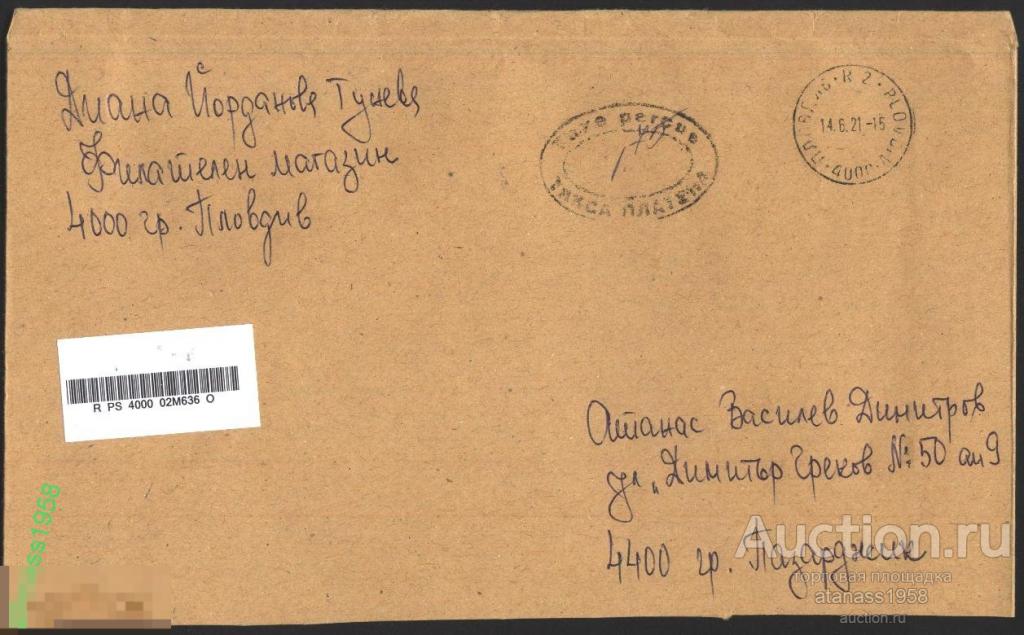 Диана Йорданова Тунева
Филателен магазин
4000 гр. Пловдив
Taxe percue
ТАКСА ПЛАТЕНА
ПЛОВДИВ · R 2 · PLOVDIV
14.6.21-15
4000
R PS 4000 02M636 O
Атанас Василев Димитров
ул. „Димитър Греков № 50 ап 9
4400 гр. Пазарджик
Auction.ru
торговая площадка
atanass1958
auction.ru
ass1958